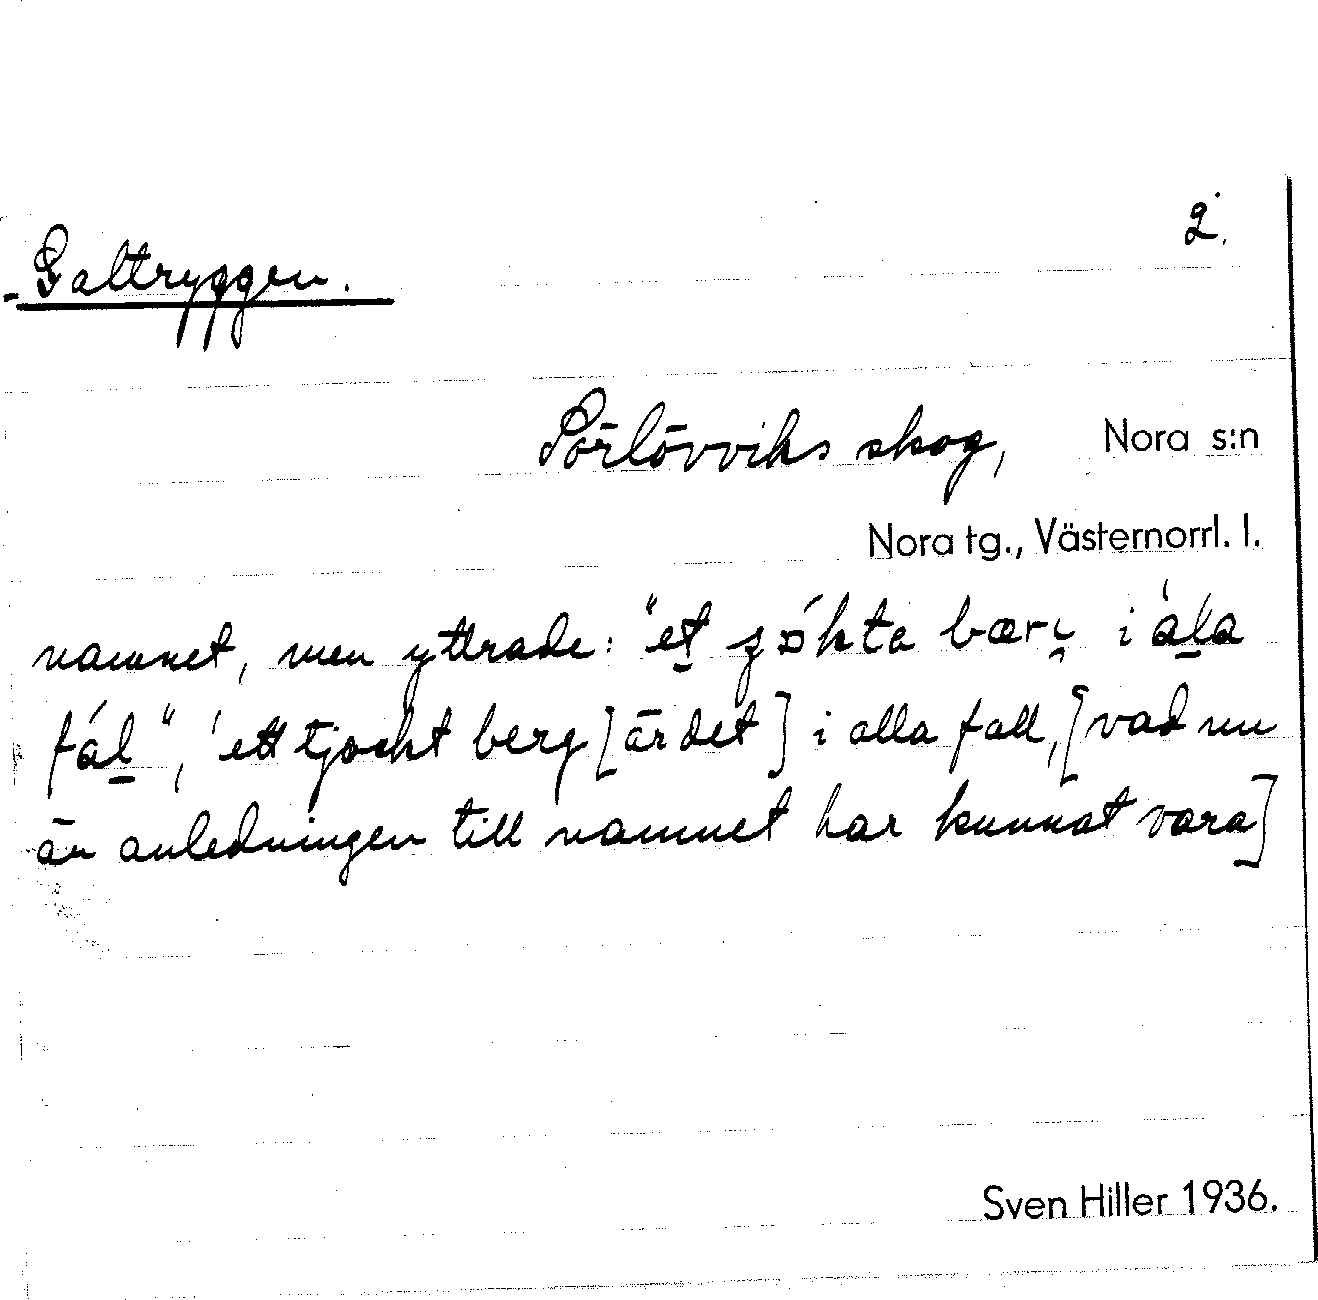 2.
Galtryggen.
Pörlövviks skog, Nora s:n
Nora tg., Västernorrl. l.
namnet, men yttrade: "et̲ i ála̲
fál̲", 'ett tjockt berg [är det] i alla fall, [vad nu
än anledningen till namnet har kunnat vara]
Sven Hiller 1936.